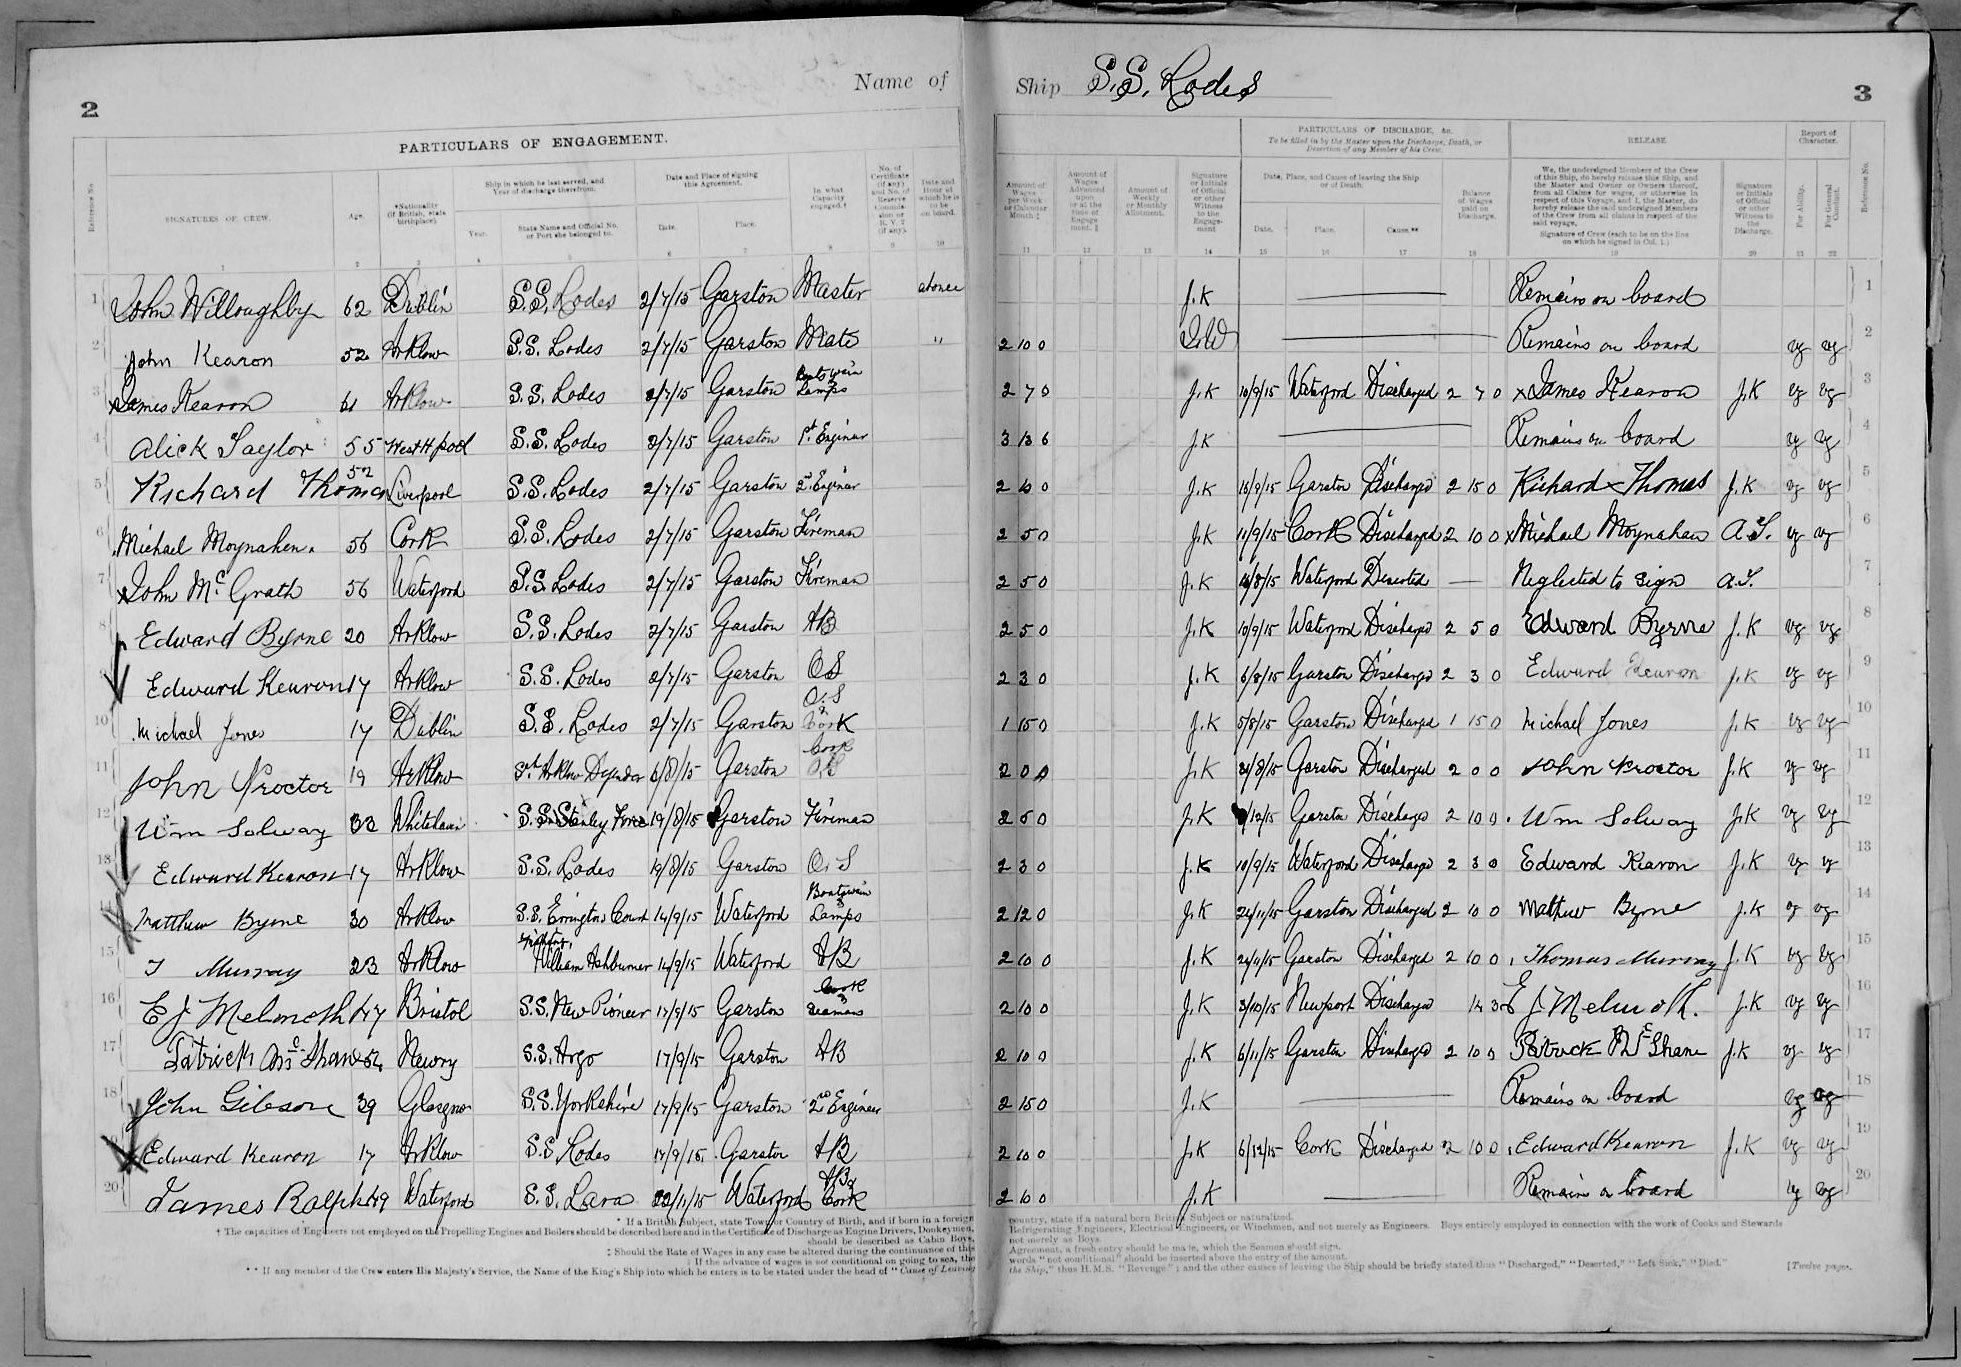 2
Name of
Ship S.S. Lodes
3
PARTICULARS OF ENGAGEMENT.
PARTICULARS OF DISCHARGE, &c.
To be filled in by the Master upon the Discharge, Death, or Desertion of any Member of his Crew.
RELEASE.
Report of Character.
Reference No
SIGNATURES OF CREW.
Age.
*Nationality (if British, state birthplace).
Ship in which he last served, and Year of discharge therefrom.
Year.
State Name and Official No. or Port she belonged to.
Date and Place of signing this Agreement.
Date.
Place.
In what Capacity engaged.†
No. of Certificate (if any) and No. of Reserve Commission or R.V.2 (if any).
Date and Hour at which he is to be on board.
Amount of Wages per Week or Calendar Month ‡
Amount of Wages Advanced upon or at the time of Engagement. ‖
Amount of Weekly or Monthly Allotment.
Signature or Initials of Official or other Witness to the Engagement
Date, Place, and Cause of leaving the Ship or of Death.
Date.
Place.
Cause.**
Balance of Wages paid on Discharge.
We, the undersigned Members of the Crew of this Ship, do hereby release this Ship, and the Master and Owner or Owners thereof, from all Claims for wages, or otherwise in respect of this Voyage, and I, the Master, do hereby release the said undersigned Members of the Crew from all claims in respect of the said voyage.
Signature of Crew (each to be on the line on which he signed in Col. 1.)
Signature or Initials of Official or other Witness to the Discharge.
For Ability.
For General Conduct.
Reference No.
1 2 3 4 5 6 7 8 9 10 11 12 13 14 15 16 17 18 19 20 21 22
1 John Willoughby 62 Dublin S.S. Lodes 2/7/15 Garston Master at once J.K Remains on board 1
2 John Kearon 52 Arklow S.S. Lodes 2/7/15 Garston Mate " 2 10 0 J.W Remains on board vg vg 2
3 x James Kearon 61 Arklow S.S. Lodes 2/7/15 Garston Boatswain & Lamps 2 7 0 J.K 10/9/15 Waterford Discharged 2 7 0 x James Kearon J.K vg vg 3
4 Alick Taylor 55 West H pool S.S. Lodes 2/7/15 Garston 1st Enginer J.K Remains on board vg vg 4
5 Richard Thomas 52 Liverpool S.S. Lodes 2/7/15 Garston 2nd Enginer J.K Garston Discharged 2 15 0 Richard Thomas J.K vg vg 5
6 Michael Moynahen. 56 Cork S.S. Lodes 2/7/15 Garston Fireman 2 5 0 J.K 11/9/15 Cork Discharged 2 10 0 x Michael Moynahen vg vg 6
7 x John McGrath 56 Waterford S.S. Lodes 2/7/15 Garston Fireman 2 5 0 J.K Waterford Deserted — Neglected to sign 7
8 Edward Byrne 20 Arklow S.S. Lodes 2/7/15 Garston AB 2 5 0 J.K 10/9/15 Waterford Discharged 2 5 0 Edward Byrne J.K vg vg 8
Edward Kearon 17 Arklow S.S. Lodes 2/7/15 Garston O.S 2 3 0 J.K 6/8/15 Garston Discharged 2 3 0 Edward Kearon J.K vg vg 9
10 Michael Jones 17 Dublin S.S. Lodes 2/7/15 Garston O.S & Cook 1 15 0 J.K 5/8/15 Garston Discharged 1 15 0 Michael Jones J.K vg vg 10
11 John Proctor 19 Arklow 6/8/15 Garston Cook 2 0 0 J.K Garston Discharged 2 0 0 John Proctor J.K vg vg 11
12 Wm Solway 33 Whitehaven S.S. Stanley Force 19/8/15 Garston Fireman 2 5 0 J.K Garston Discharged 2 10 0 Wm Solway J.K vg vg 12
13 Edward Kearon 17 Arklow S.S. Lodes 19/8/15 Garston O.S 2 3 0 J.K 10/9/15 Waterford Discharged 2 3 0 Edward Kearon J.K vg vg 13
Matthew Byrne 30 Arklow S.S. Errington Court 14/9/15 Waterford Boatswain & Lamps 2 12 0 J.K 24/11/15 Garston Discharged 2 10 0 Mathew Byrne J.K vg vg 14
15 T Murray 23 Arklow William Ashburner 14/9/15 Waterford AB 2 10 0 J.K 24/11/15 Garston Discharged 2 10 0 Thomas Murray J.K vg vg 15
16 E J Melmoth 47 Bristol S.S. New Pioneer 17/9/15 Garston Cook & Seaman 2 10 0 J.K Newport Discharged E J Melmoth. J.K vg vg 16
17 Patrick McShane 52 Newry S.S. Argo 17/9/15 Garston AB 2 10 0 J.K 6/11/15 Garston Discharged 2 10 0 Patrick McShane J.K vg vg 17
John Gibson 39 Glasgow S.S. Yorkshire 17/9/15 Garston 2nd Engineer 2 15 0 J.K Remains on board vg vg 18
Edward Kearon 17 Arklow S.S Lodes 17/9/15. Garston AB 2 10 0 J.K 6/12/15 Cork Discharged 2 10 0 Edward Kearon J.K vg vg 19
20 James Ralph 49 Waterford S.S. Lara 22/11/15 Waterford AB & Cook 2 10 0 J.K Remain on board vg vg 20
* If a British Subject, state Town or Country of Birth, and if born in a foreign country, state if a natural born British Subject or naturalized.
† The capacities of Engineers not employed on the Propelling Engines and Boilers should be described here and in the Certificate of Discharge as Engine Drivers, Donkeymen, Refrigerating Engineers, Electrical Engineers, or Winchmen, and not merely as Engineers. Boys entirely employed in connection with the work of Cooks and Stewards should be described as Cabin Boys, not merely as Boys
‡ Should the Rate of Wages in any case be altered during the continuance of this Agreement, a fresh entry should be made, which the Seamen should sign.
‖ If the advance of wages is not conditional on going to sea, the words "not conditional" should be inserted above the entry of the amount.
** If any member of the Crew enters His Majesty's Service, the Name of the King's Ship into which he enters is to be stated under the head of "Cause of Leaving the Ship," thus H.M.S. "Revenge"; and the other causes of leaving the Ship should be briefly stated thus "Discharged," "Deserted," "Left Sick," "Died."
[Twelve pages.